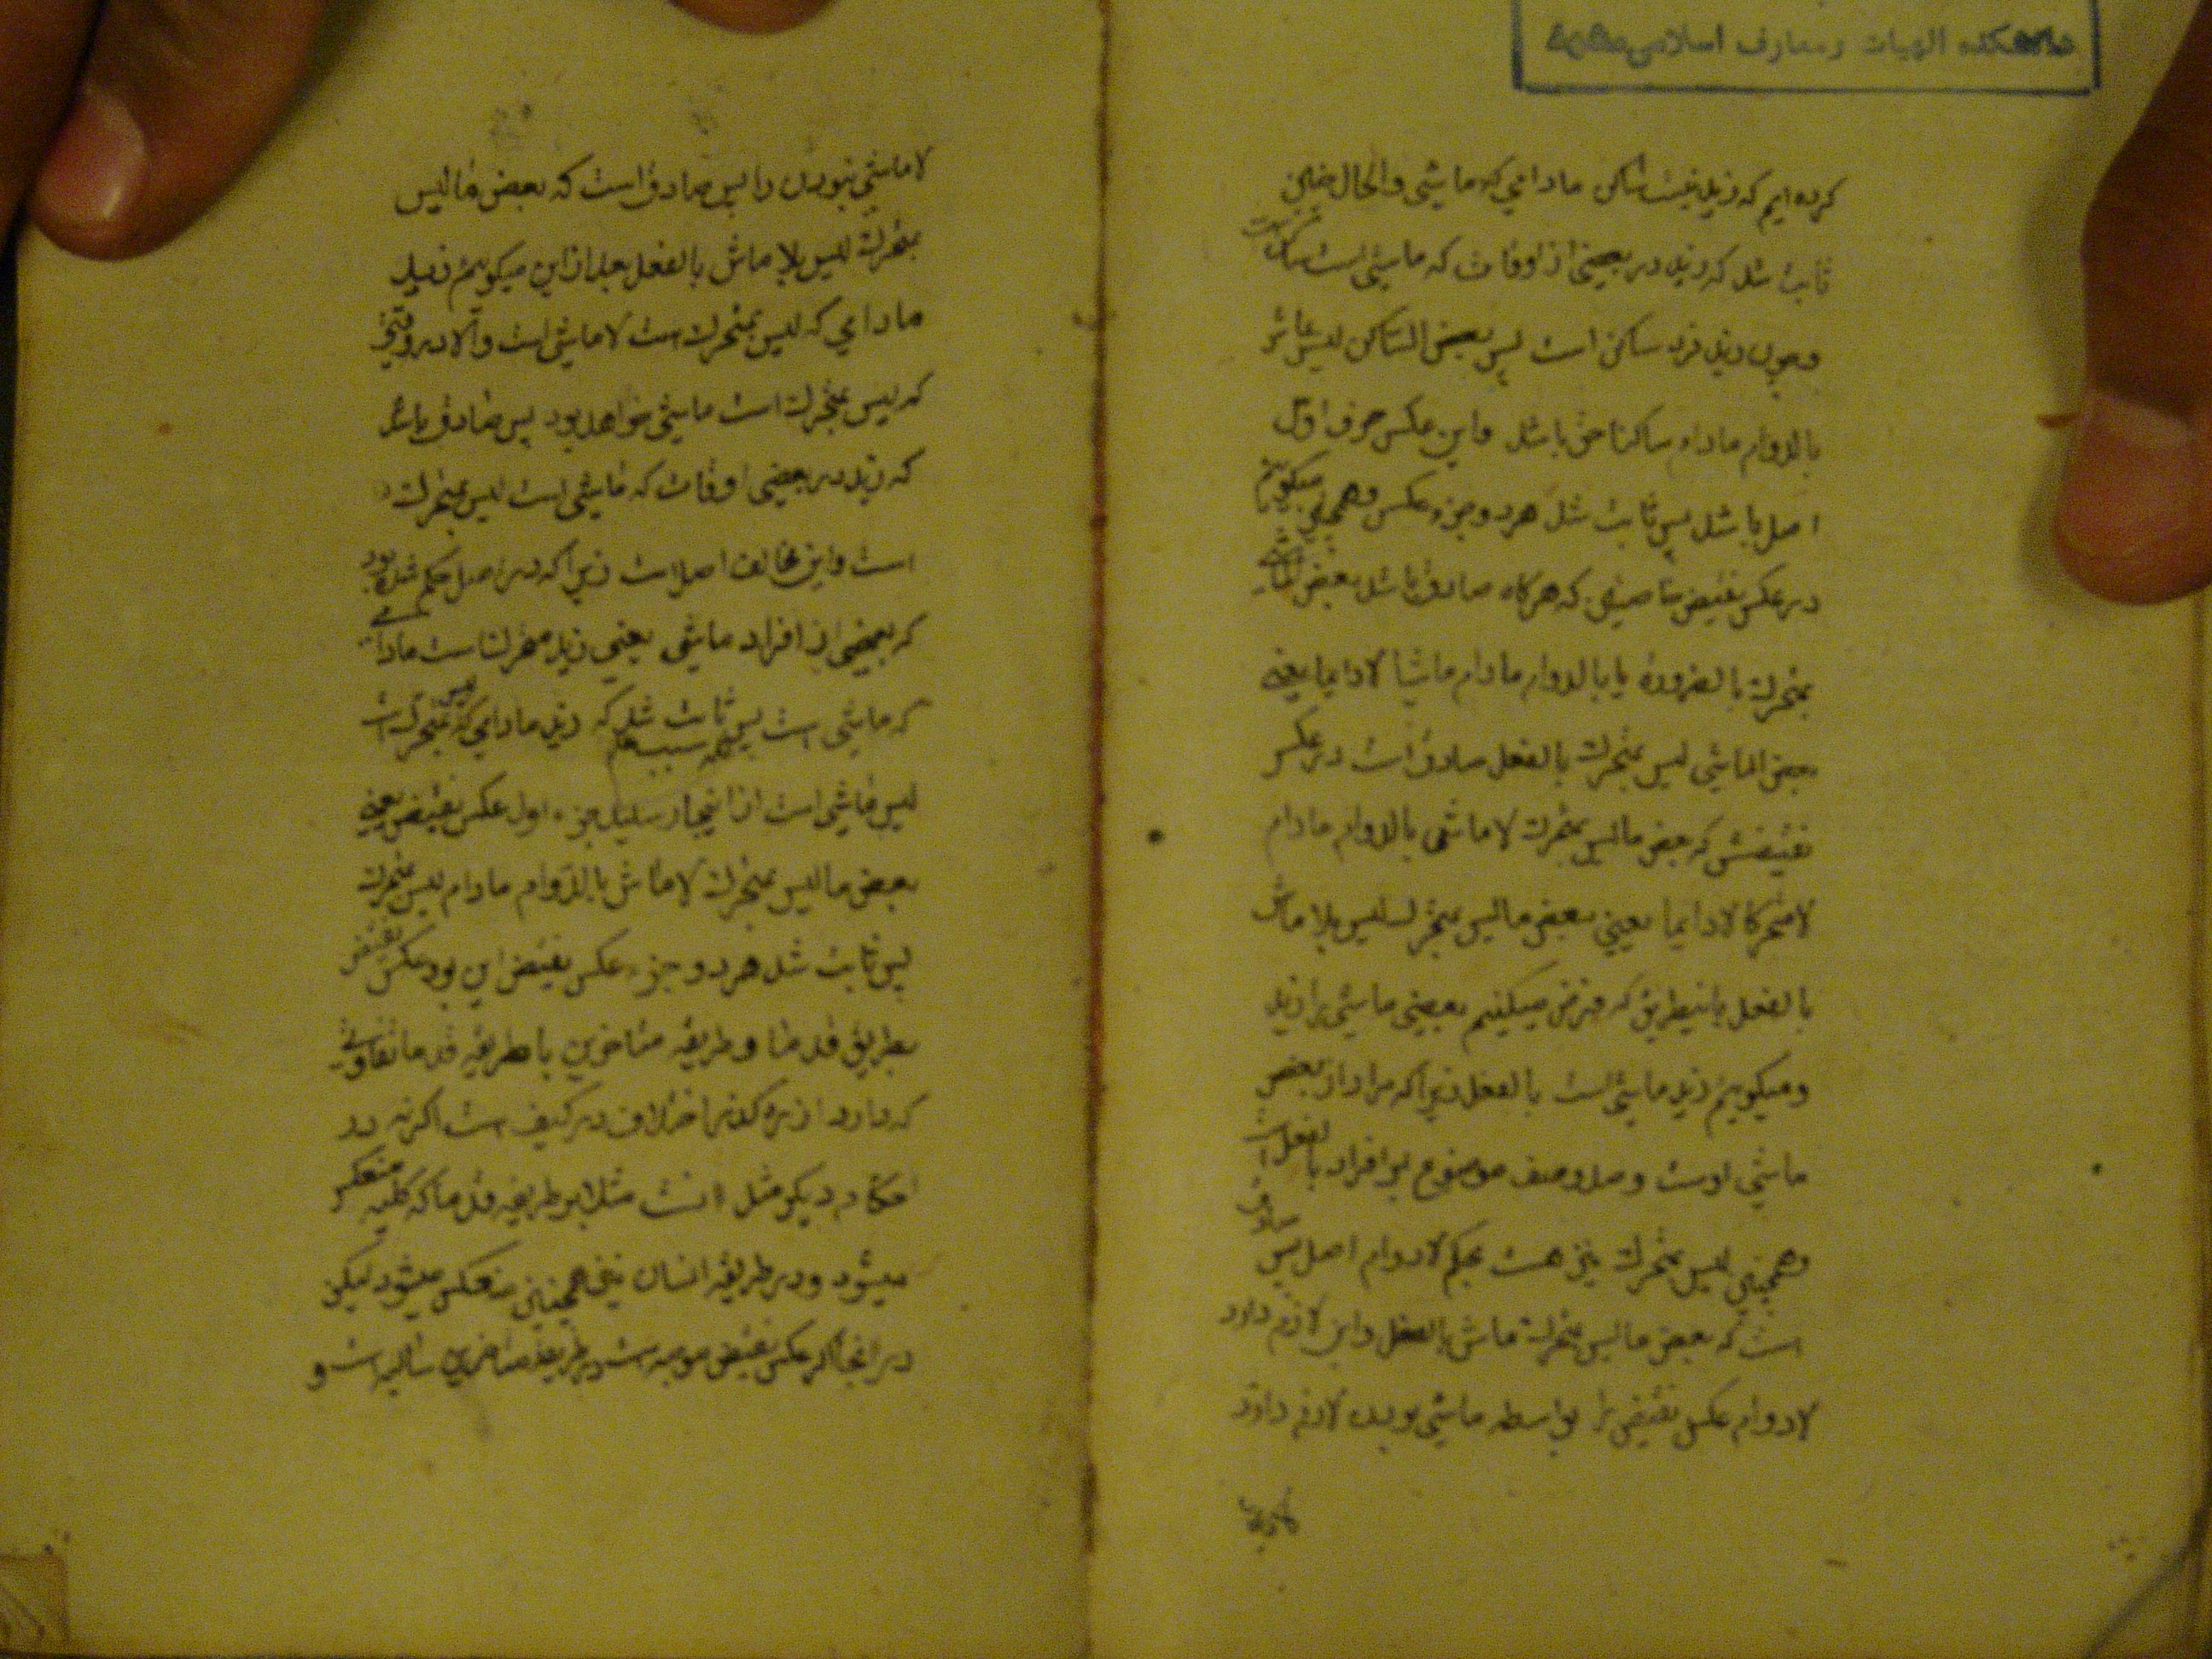 دانشکده الهیات و معارف اسلامی مشهد
کرده ایم که زید نیست ساکن مادامی که ماشی والحال
ثابت شد که زید در بعضی از اوقات که ماشی است ساکن نیست
وچون زید فرد ساکن است پس بعض الساکن لیس
بالدوام مادام ساکنا حق باشد واین عکس حرف اول
اصل باشد پس ثابت شد هر دو جزء عکس وهمچنین میکوییم
در عکس نقیض خاصیتین که هرکاه صادق باشد بعض الماشی
بمتحرک بالضروره یا بالدوام مادام ماشیا لا دایما یعنی
بعض الماشی لیس بمتحرک بالفعل صادق است در عکس
نقیضش که بعض مالیس بمتحرک لا ماشی بالدوام مادام
لا متحرکا لا دایما یعنی بعض مالیس بمتحرک لیس بلا ماش
بالفعل باینطریق که فرض میکنیم بعضی ماشی را زید
ومیکوییم زید ماشی است بالفعل زیرا که مراد از بعض
ماشی اوست وصدق وصف موضوع بر افراد بالفعل است
وهمچنین لیس بمتحرک نیز هست بحکم لا دوام اصل پس صادق
است که بعض مالیس بمتحرک ماش بالفعل واین لازم دارد
لا دوام عکس نقیض را بواسطه ماشی بودن لازم دارد
لا ماشی نبودن را پس صادق است که بعض مالیس
بمتحرک لیس بلا ماش بالفعل بعد از این میکوییم زید
مادامی که لیس بمتحرک است لا ماشی است والا در وقتی
که لیس بمتحرک است ماشی خواهد بود پس صادق باشد
که زید در بعضی اوقات که ماشی است لیس بمتحرک
است واین مخالف اصل است زیرا که در اصل حکم شده بود
که بعضی از افراد ماشی یعنی زید متحرک است مادامی
که ماشی است پس ثابت شد که زید مادامی که لیس بمتحرک است
لیس ماشی است از اینجا رسید جزء اول عکس نقیض یعنی
بعض مالیس بمتحرک لا ماش بالدوام مادام لیس بمتحرک
پس ثابت شد هر دو جزء عکس نقیض این بود عکس نقیض
بطریق قدما وطریقه متاخرین با طریقه قدما تفاوتی
که دارد از اختلاف در کیف است اکرنه در
احکام دیکر مثل مثلا بر طریقه قدما که کلیه منعکس
میشود ودر طریقه ایشان نیز همچنین منعکس میشود لیکن
در انجا اکر عکس نقیض موجبه است در طریقه متاخرین سالبه است و